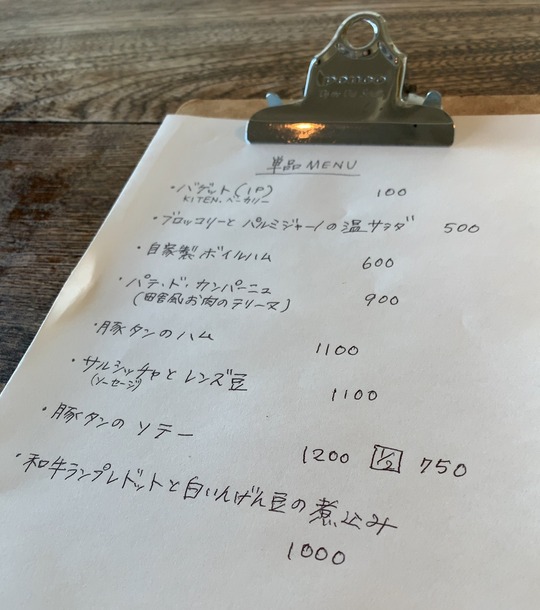 単品MENU
・バゲット(1P) 100
KITEN.ベーカリー
・ブロッコリーと パルミジャーノの 温サラダ 500
・自家製 ボイルハム 600
・パテ・ド・カンパーニュ 900
(田舎風お肉のテリーヌ)
・豚タンのハム 1100
・サルシッチャと レンズ豆 1100
(ソーセージ)
・豚タンの ソテー 1200 1/2 750
・和牛ランプレドットと白いんげん豆の煮込み
1000